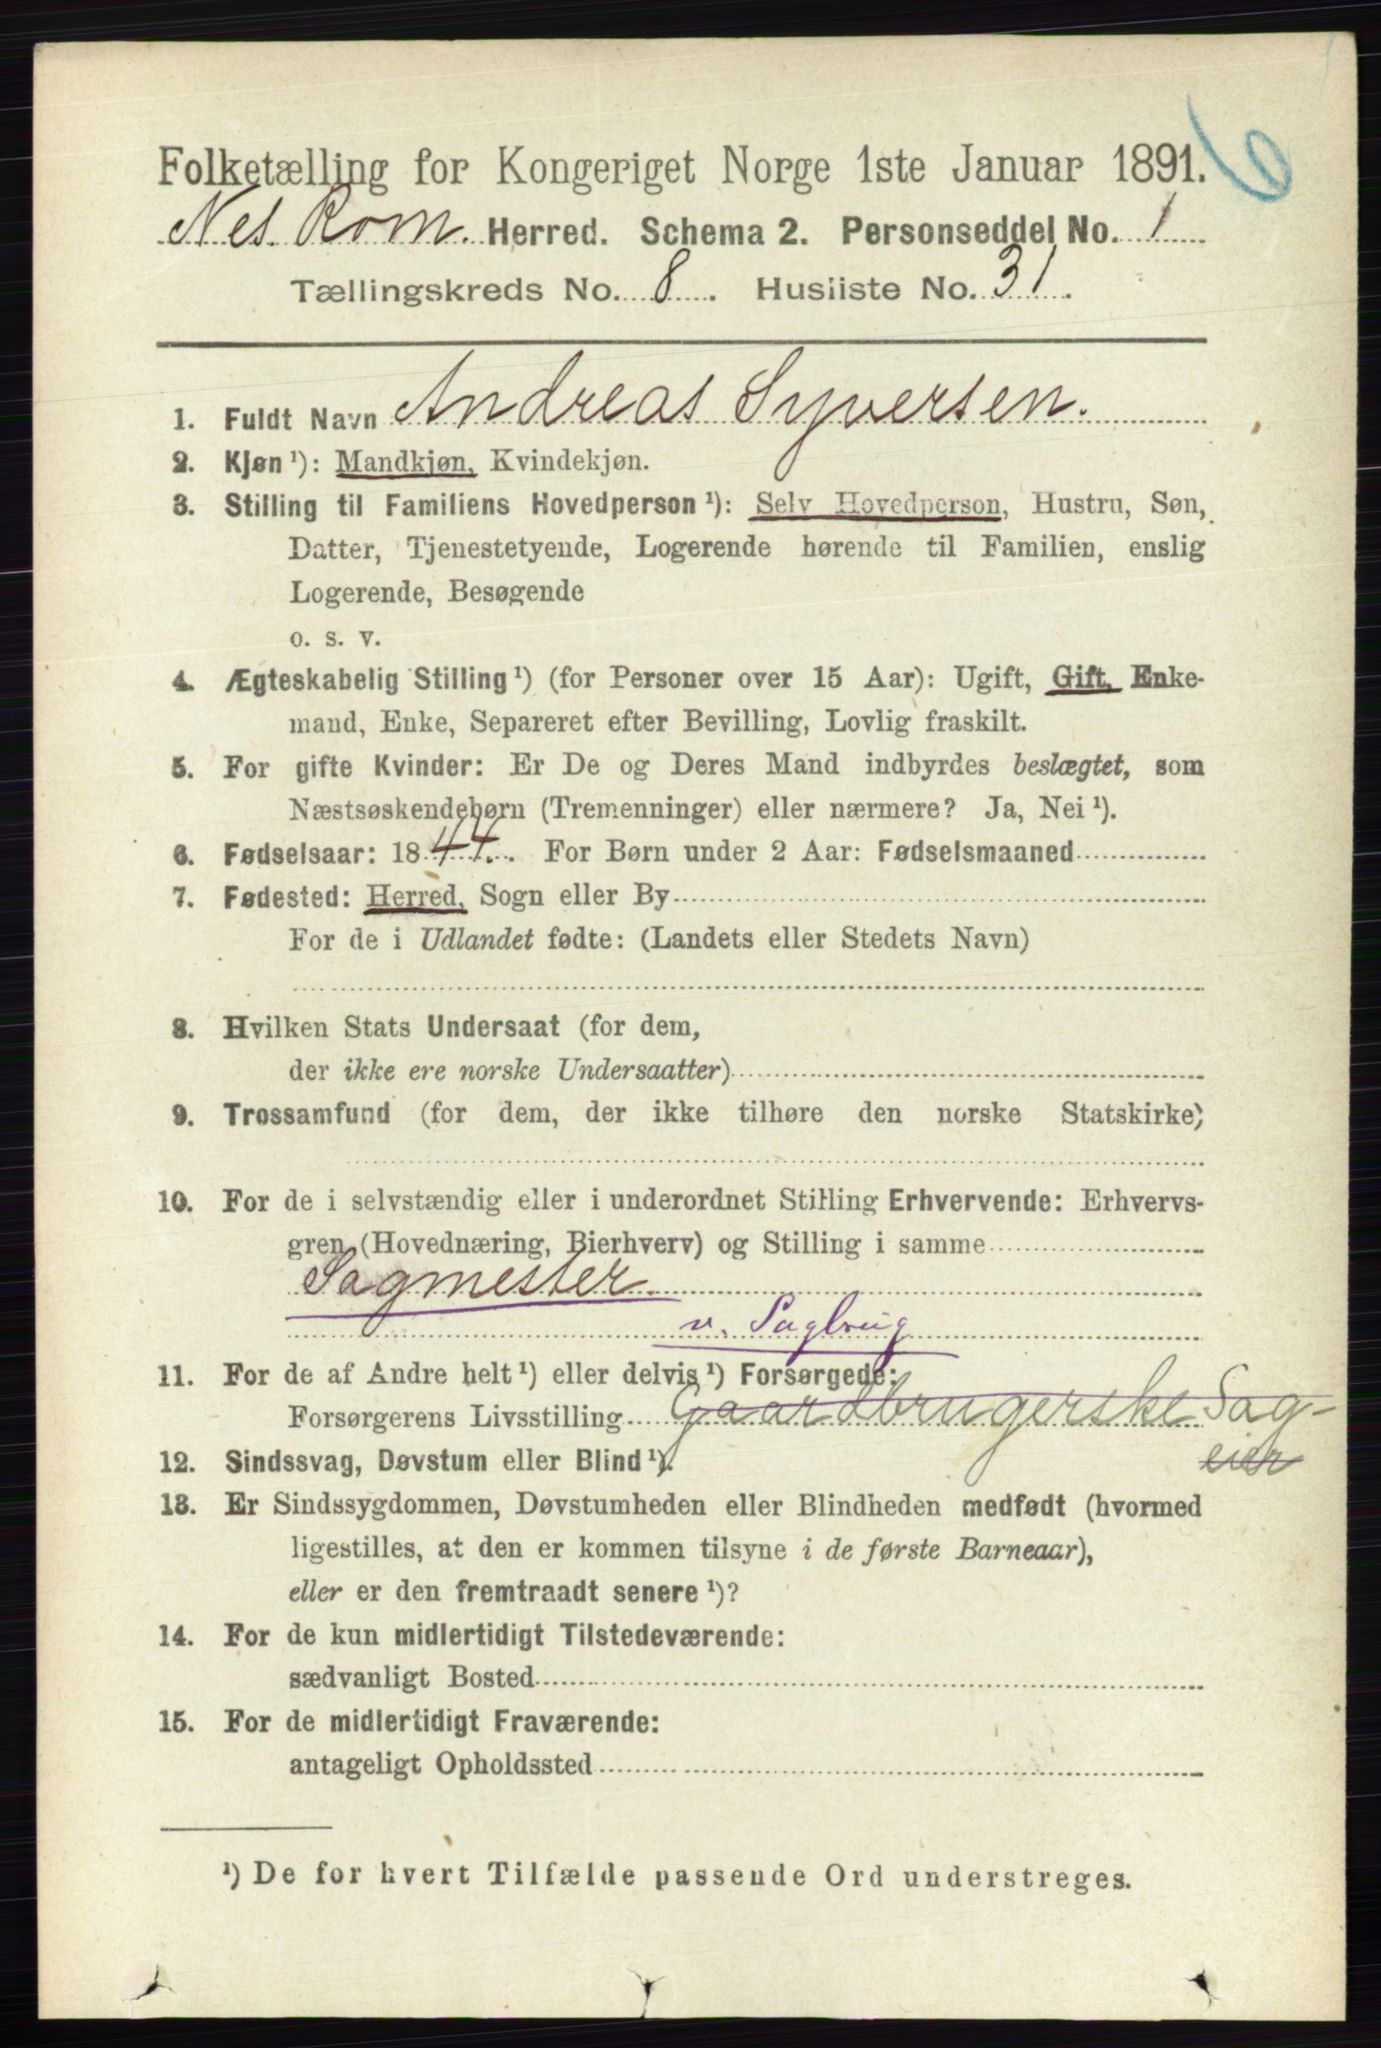 6
Folketælling for Kongeriget Norge 1ste Januar 1891.
Nes Rom. Herred. Schema 2. Personseddel No. 1
Tællingskreds No. 8. Husliste No. 31.
1. Fuldt Navn Andreas Syversen.
2. Kjøn ¹): Mandkjøn, Kvindekjøn.
3. Stilling til Familiens Hovedperson ¹): Selv Hovedperson, Hustru, Søn,
Datter, Tjenestetyende, Logerende hørende til Familien, enslig
Logerende, Besøgende
o. s. v.
4. Ægteskabelig Stilling ¹) (for Personer over 15 Aar): Ugift, Gift, Enke-
mand, Enke, Separeret efter Bevilling, Lovlig fraskilt.
5. For gifte Kvinder: Er De og Deres Mand indbyrdes beslægtet, som
Næstsøskendebørn (Tremenninger) eller nærmere? Ja, Nei ¹).
6. Fødselsaar: 1844. For Børn under 2 Aar: Fødselsmaaned
7. Fødested: Herred, Sogn eller By
For de i Udlandet fødte: (Landets eller Stedets Navn)
8. Hvilken Stats Undersaat (for dem,
der ikke ere norske Undersaatter)
9. Trossamfund (for dem, der ikke tilhøre den norske Statskirke)
10. For de i selvstændig eller i underordnet Stilling Erhvervende: Erhvervs-
gren (Hovednæring, Bierhverv) og Stilling i samme
Sagmester.
v. Sagbrug
11. For de af Andre helt ¹) eller delvis ¹) Forsørgede:
Forsørgerens Livsstilling Gaardbrugerske Sag-
eier
12. Sindssvag, Døvstum eller Blind ¹).
13. Er Sindssygdommen, Døvstumheden eller Blindheden medfødt (hvormed
ligestilles, at den er kommen tilsyne i de første Barneaar),
eller er den fremtraadt senere ¹)?
14. For de kun midlertidigt Tilstedeværende:
sædvanligt Bosted
15. For de midlertidigt Fraværende:
antageligt Opholdssted
¹) De for hvert Tilfælde passende Ord understreges.